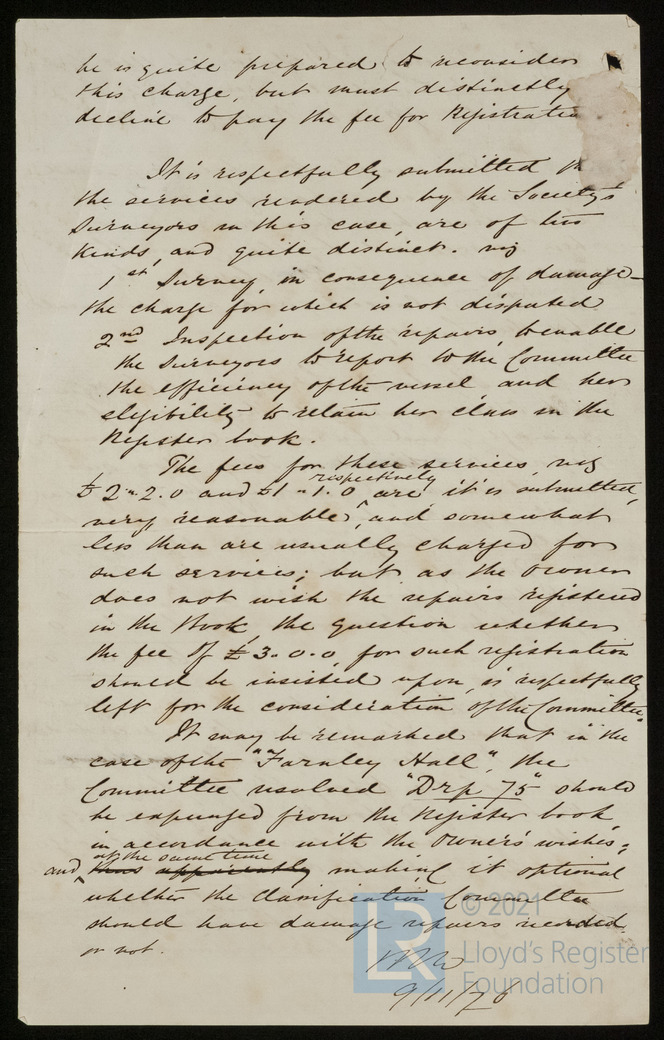 he is quite prepared to reconsider
this charge, but must distinctly
decline to pay the fee for Registration
It is respectfully submitted
the services rendered by the Society's
Surveyors in this case, are of two
kinds, and quite distinct. viz
1st Survey, in consequence of damage—
the charge for which is not disputed
2nd Inspection of the repairs, to enable
the Surveyors to report to the Committee
the efficiency of the vessel, and her
eligibility to retain her class in the
Register book.
The fees for these services, viz
respectively
£2 " 2. 0 and £1 " 1. 0 ^ are, it is submitted,
very reasonable, and somewhat
less than are usually charged for
such services; but as the Owner
does not wish the repairs registered
in the Book, the question whether
the fee of £3. 0. 0 for such registration
should be insisted upon, is respectfully
left for the consideration of the Committee.
It may be remarked that in the
case of the "Farnley Hall", the
Committee resolved "Drp 75" should
be expunged from the Register book
in accordance with the Owners' wishes;
at the same time
and ^ thus apparently making it optional
whether the Classification Committee
should have damage repairs recorded,
or not.
9/11/76
LR
© 2021
Lloyd's Register
Foundation